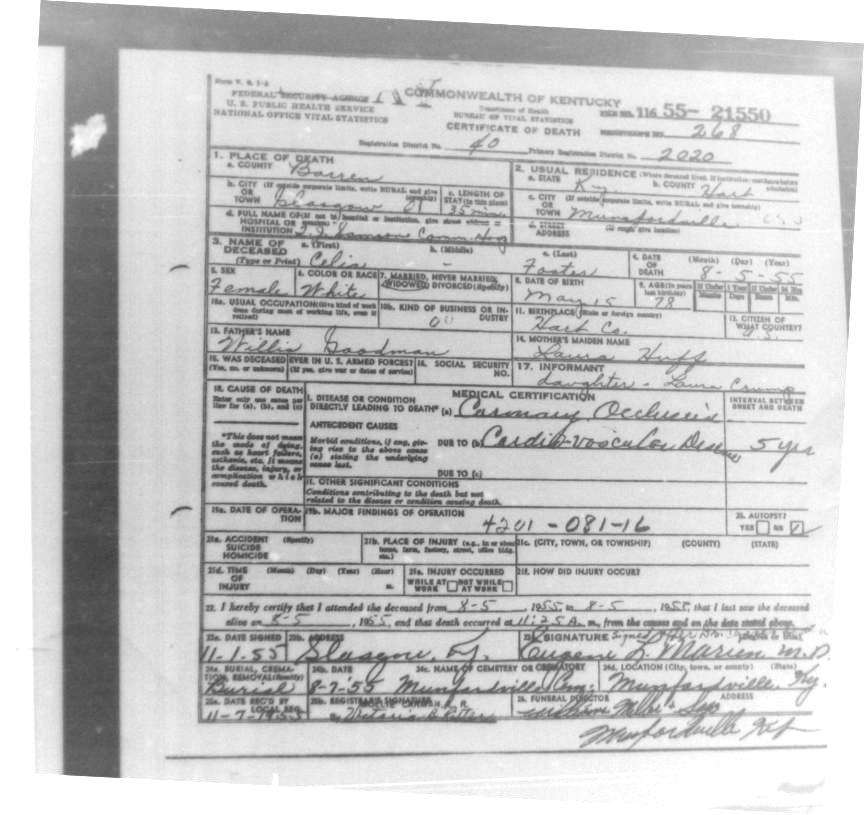 Form V. S. 1-A
FEDERAL SECURITY AGENCY
U. S. PUBLIC HEALTH SERVICE
NATIONAL OFFICE VITAL STATISTICS
COMMONWEALTH OF KENTUCKY
Department of Health
BUREAU OF VITAL STATISTICS
CERTIFICATE OF DEATH
116 55- 21550
REGISTRAR'S NO. 268
Registration District No. 40 Primary Registration District No. 2020
1. PLACE OF DEATH
a. COUNTY Barren
b. CITY (If outside corporate limits, write RURAL and give township) OR TOWN Glasgow
c. LENGTH OF STAY (in this place) 35 min
d. FULL NAME OF (If not in hospital or institution, give street address or location) HOSPITAL OR INSTITUTION T. J. Samson Comm. Hosp
2. USUAL RESIDENCE (Where deceased lived. If institution: residence before admission)
a. STATE Ky b. COUNTY Hart
c. CITY (If outside corporate limits, write RURAL and give township) OR TOWN Munfordville
d. STREET ADDRESS (If rural, give location)
3. NAME OF DECEASED (Type or Print) a. (First) Celia b. (Middle) - c. (Last) Foster
4. DATE OF DEATH (Month) (Day) (Year) 8 - 5 - 55
5. SEX Female
6. COLOR OR RACE White
7. MARRIED, NEVER MARRIED, WIDOWED, DIVORCED (Specify)
8. DATE OF BIRTH May 15
9. AGE (In years last birthday) 78 If Under 1 Year Months Days If Under 24 Hrs. Hours Min.
10a. USUAL OCCUPATION (Give kind of work done during most of working life, even if retired)
10b. KIND OF BUSINESS OR INDUSTRY
11. BIRTHPLACE (State or foreign country) Hart Co.
12. CITIZEN OF WHAT COUNTRY? U.S.
13. FATHER'S NAME Willis Goodman
14. MOTHER'S MAIDEN NAME Laura Huff
15. WAS DECEASED EVER IN U. S. ARMED FORCES? (Yes, no, or unknown) (If yes, give war or dates of service)
16. SOCIAL SECURITY NO.
17. INFORMANT daughter - Laura Crump
18. CAUSE OF DEATH
Enter only one cause per line for (a), (b), and (c)
MEDICAL CERTIFICATION
INTERVAL BETWEEN ONSET AND DEATH
I. DISEASE OR CONDITION DIRECTLY LEADING TO DEATH* (a) Coronary Occlusion
*This does not mean the mode of dying, such as heart failure, asthenia, etc. It means the disease, injury, or complication which caused death.
ANTECEDENT CAUSES
Morbid conditions, if any, giving rise to the above cause (a) stating the underlying cause last.
DUE TO (b) Cardio-vascular Disease 5 yrs
DUE TO (c)
II. OTHER SIGNIFICANT CONDITIONS
Conditions contributing to the death but not related to the disease or condition causing death.
19a. DATE OF OPERATION
19b. MAJOR FINDINGS OF OPERATION
4201 - 081-16
20. AUTOPSY? YES NO
21a. ACCIDENT SUICIDE HOMICIDE (Specify)
21b. PLACE OF INJURY (e.g., in or about home, farm, factory, street, office bldg. etc.)
21c. (CITY, TOWN, OR TOWNSHIP) (COUNTY) (STATE)
21d. TIME OF INJURY (Month) (Day) (Year) (Hour) m.
21e. INJURY OCCURRED WHILE AT WORK NOT WHILE AT WORK
21f. HOW DID INJURY OCCUR?
22. I hereby certify that I attended the deceased from 8-5, 1955, to 8-5, 1955, that I last saw the deceased
alive on 8-5, 1955, and that death occurred at 11:25 A. m., from the causes and on the date stated above.
23a. DATE SIGNED 11-1-55
23b. ADDRESS Glasgow, Ky.
23c. SIGNATURE Eugene L. Marion M.D.
24a. BURIAL, CREMATION, REMOVAL (Specify) Burial
24b. DATE 8-7-55
24c. NAME OF CEMETERY OR CREMATORY Munfordville Cem.
24d. LOCATION (City, town, or county) (State) Munfordville, Ky.
25a. DATE REC'D BY LOCAL REG. 11-7-1955
25b. REGISTRAR'S SIGNATURE
26. FUNERAL DIRECTOR ADDRESS
Munfordville Ky